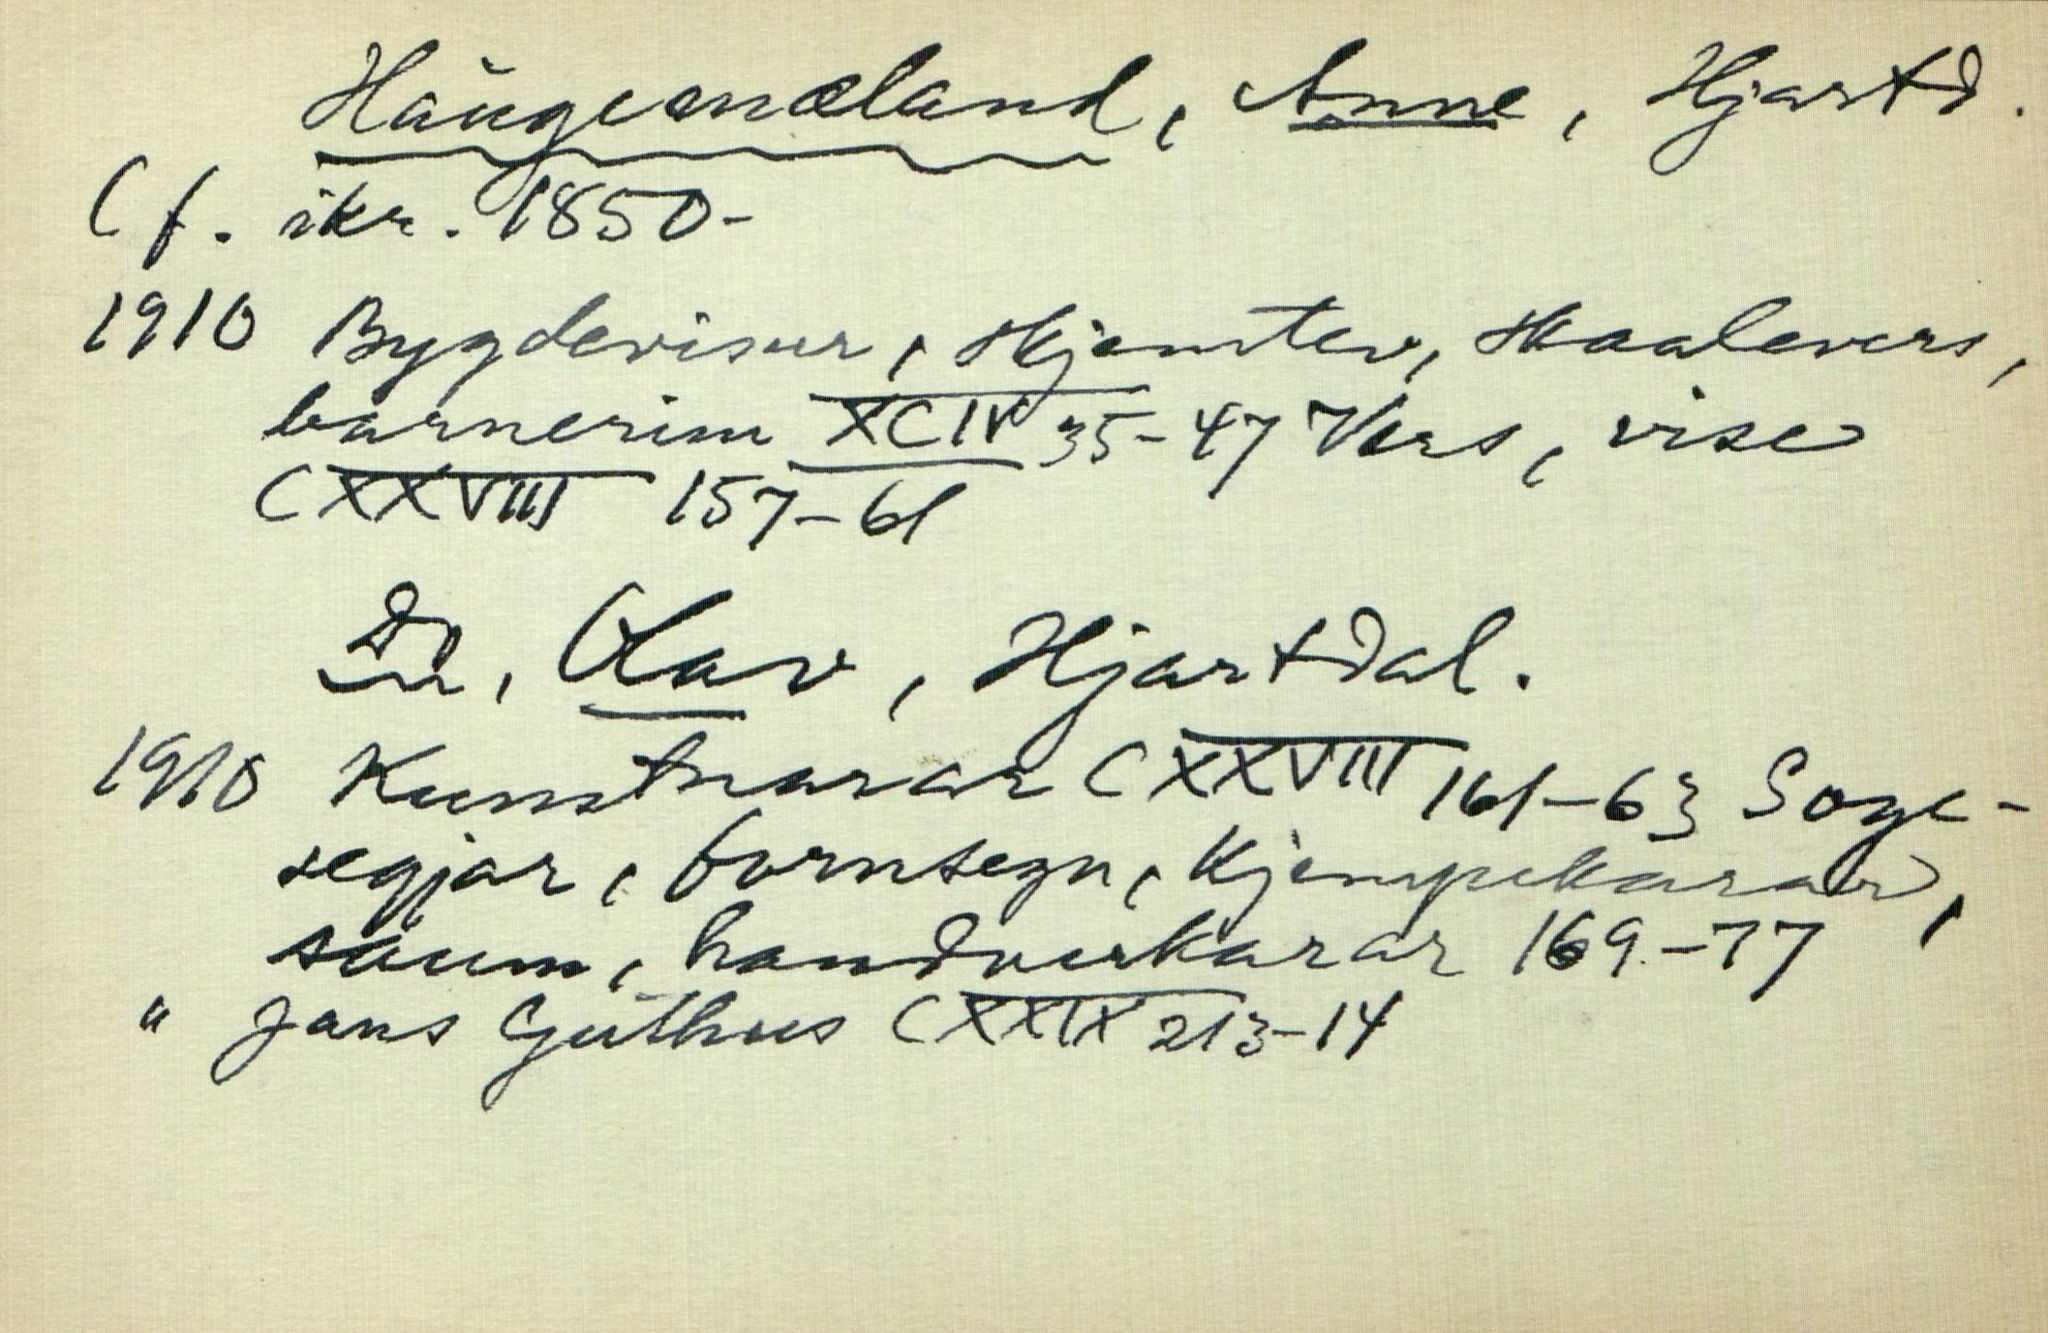 Haugemæland, Anne, Hjartd.
(f. ikr. 1850-
1910 Bygdevisur, Skjemtev, Skaalevers,
barnerim XCIV 35-47 Vers, vise
CXXVIII 157-61
Do, Olav, Hjartdal.
1910 Kunstnarar CXXVIII 161-63 Soge-
segjar, fornsegn, kjempekarar,
saum, handverkarar 169-77
" Jans Guthus CXXIX 213-14